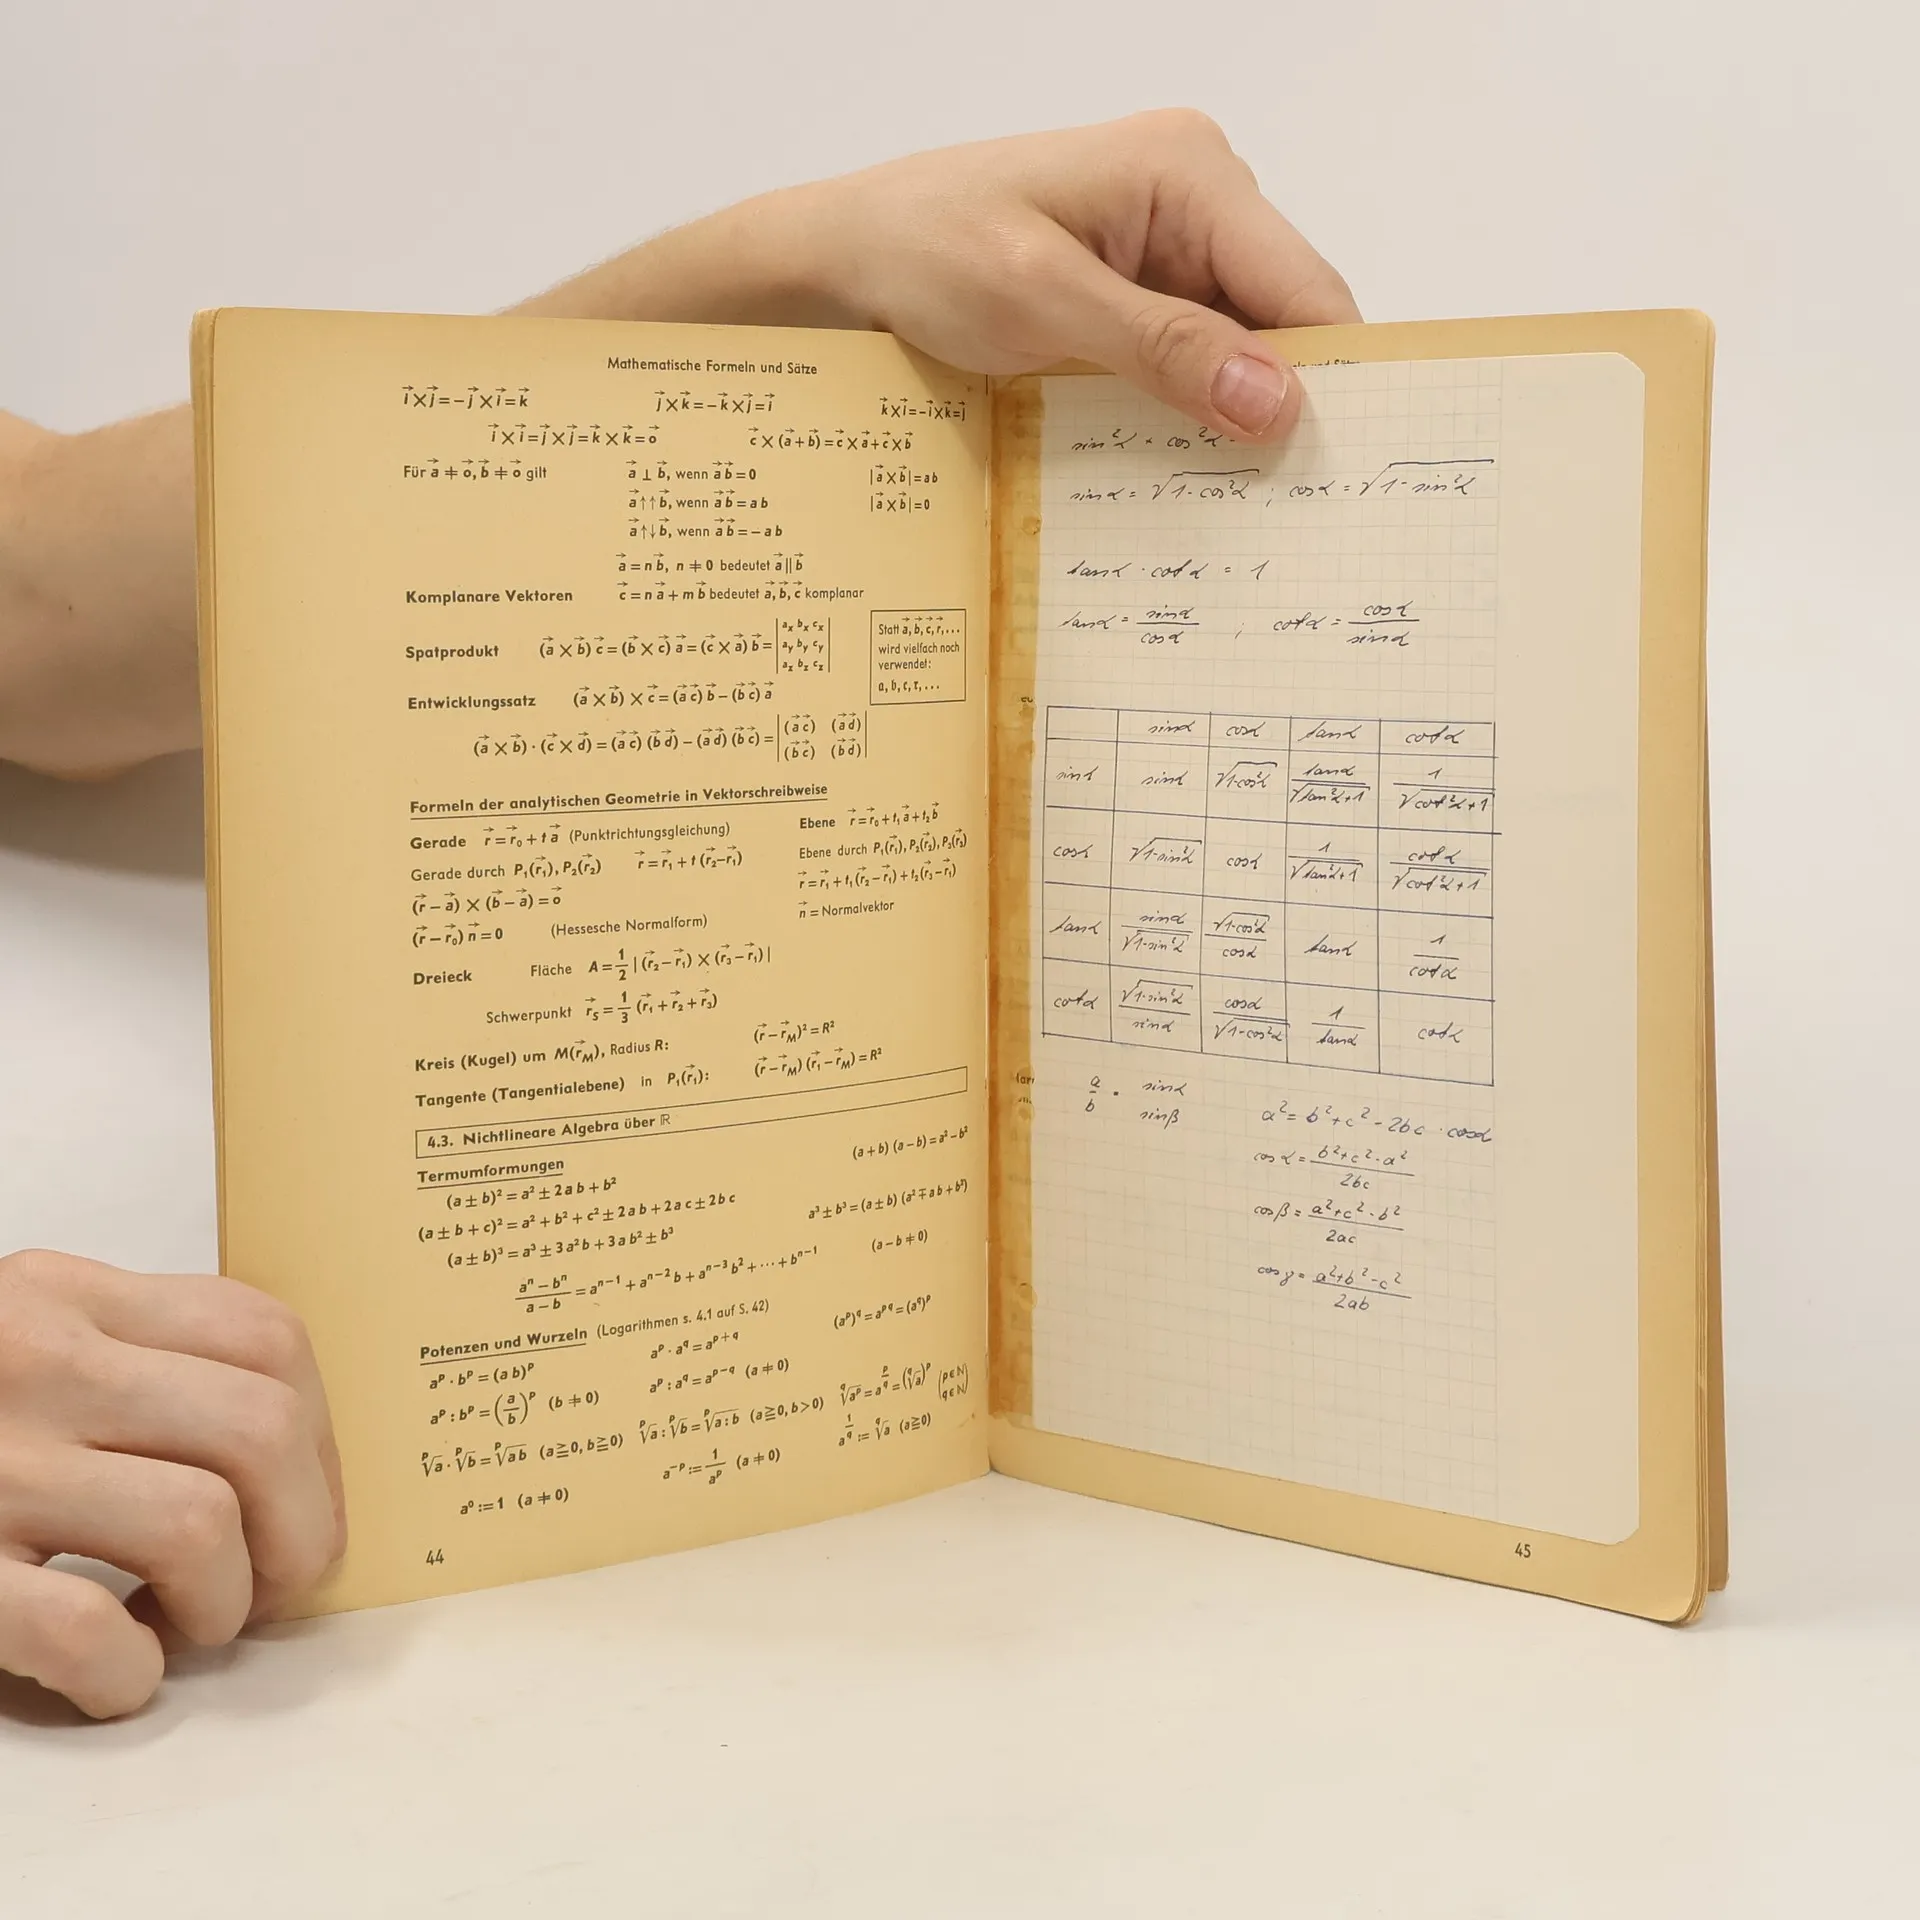 Mathematische Formeln und Sätze
i⃗×j⃗=−j⃗×i⃗=k⃗ j⃗×k⃗=−k⃗×j⃗=i⃗ k⃗×i⃗=−i⃗×k⃗=j⃗
i⃗×i⃗=j⃗×j⃗=k⃗×k⃗=o⃗ c⃗×(a⃗+b⃗)=c⃗×a⃗+c⃗×b⃗
Für a⃗≠o⃗, b⃗≠o⃗ gilt a⃗⊥b⃗, wenn a⃗b⃗=0 |a⃗×b⃗|=ab
a⃗↑↑b⃗, wenn a⃗b⃗=ab |a⃗×b⃗|=0
a⃗↑↓b⃗, wenn a⃗b⃗=−ab
a⃗=nb⃗, n≠0 bedeutet a⃗||b⃗
Komplanare Vektoren c⃗=na⃗+mb⃗ bedeutet a⃗,b⃗,c⃗ komplanar
Spatprodukt (a⃗×b⃗)c⃗=(b⃗×c⃗)a⃗=(c⃗×a⃗)b⃗=|aₓ bₓ cₓ
a_y b_y c_y
a_z b_z c_z|
Statt a⃗,b⃗,c⃗,r⃗,...
wird vielfach noch
verwendet:
a,b,c,r,...
Entwicklungssatz (a⃗×b⃗)×c⃗=(a⃗c⃗)b⃗−(b⃗c⃗)a⃗
(a⃗×b⃗)·(c⃗×d⃗)=(a⃗c⃗)(b⃗d⃗)−(a⃗d⃗)(b⃗c⃗)=|(a⃗c⃗) (a⃗d⃗)
(b⃗c⃗) (b⃗d⃗)|
Formeln der analytischen Geometrie in Vektorschreibweise
Gerade r⃗=r⃗₀+ta⃗ (Punktrichtungsgleichung) Ebene r⃗=r⃗₀+t₁a⃗+t₂b⃗
Gerade durch P₁(r⃗₁), P₂(r⃗₂) r⃗=r⃗₁+t(r⃗₂−r⃗₁) Ebene durch P₁(r⃗₁), P₂(r⃗₂), P₃(r⃗₃)
(r⃗−a⃗)×(b⃗−a⃗)=o⃗ r⃗=r⃗₁+t₁(r⃗₂−r⃗₁)+t₂(r⃗₃−r⃗₁)
(r⃗−r⃗₀)n⃗=0 (Hessesche Normalform) n⃗=Normalvektor
Dreieck Fläche A=1/2|(r⃗₂−r⃗₁)×(r⃗₃−r⃗₁)|
Schwerpunkt r⃗_S=1/3(r⃗₁+r⃗₂+r⃗₃)
Kreis (Kugel) um M(r⃗_M), Radius R: (r⃗−r⃗_M)²=R²
Tangente (Tangentialebene) in P₁(r⃗₁): (r⃗−r⃗_M)(r⃗₁−r⃗_M)=R²
4.3. Nichtlineare Algebra über ℝ
Termumformungen (a+b)(a−b)=a²−b²
(a±b)²=a²±2ab+b²
(a±b+c)²=a²+b²+c²±2ab+2ac±2bc a³±b³=(a±b)(a²∓ab+b²)
(a±b)³=a³±3a²b+3ab²±b³
(aⁿ−bⁿ)/(a−b)=aⁿ⁻¹+aⁿ⁻²b+aⁿ⁻³b²+···+bⁿ⁻¹ (a−b≠0)
Potenzen und Wurzeln (Logarithmen s. 4.1 auf S. 42)
a^p·b^p=(ab)^p a^p·a^q=a^(p+q) (a^p)^q=a^(pq)=(a^q)^p
a^p:b^p=(a/b)^p (b≠0) a^p:a^q=a^(p−q) (a≠0) q√a^p=a^(p/q)=(q√a)^p (p∈N
q∈N)
p√a·p√b=p√ab (a≧0, b≧0) p√a:p√b=p√a:b (a≧0, b>0) a^(1/q):=q√a (a≧0)
a⁰:=1 (a≠0) a^(−p):=1/a^p (a≠0)
44
sin²α + cos²α
sinα = √1-cos²α ; cosα = √1-sin²α
tanα · cotα = 1
tanα = sinα/cosα ; cotα = cosα/sinα
sinα cosα tanα cotα
sinα sinα √1-cos²α tanα/√tan²α+1 1/√cot²α+1
cosα √1-sin²α cosα 1/√tan²α+1 cotα/√cot²α+1
tanα sinα/√1-sin²α √1-cos²α/cosα tanα 1/cotα
cotα √1-sin²α/sinα cosα/√1-cos²α 1/tanα cotα
a/b = sinα
sinβ
a² = b²+c²-2bc · cosα
cosα = b²+c²-a²/2bc
cosβ = a²+c²-b²/2ac
cosγ = a²+b²-c²/2ab
45